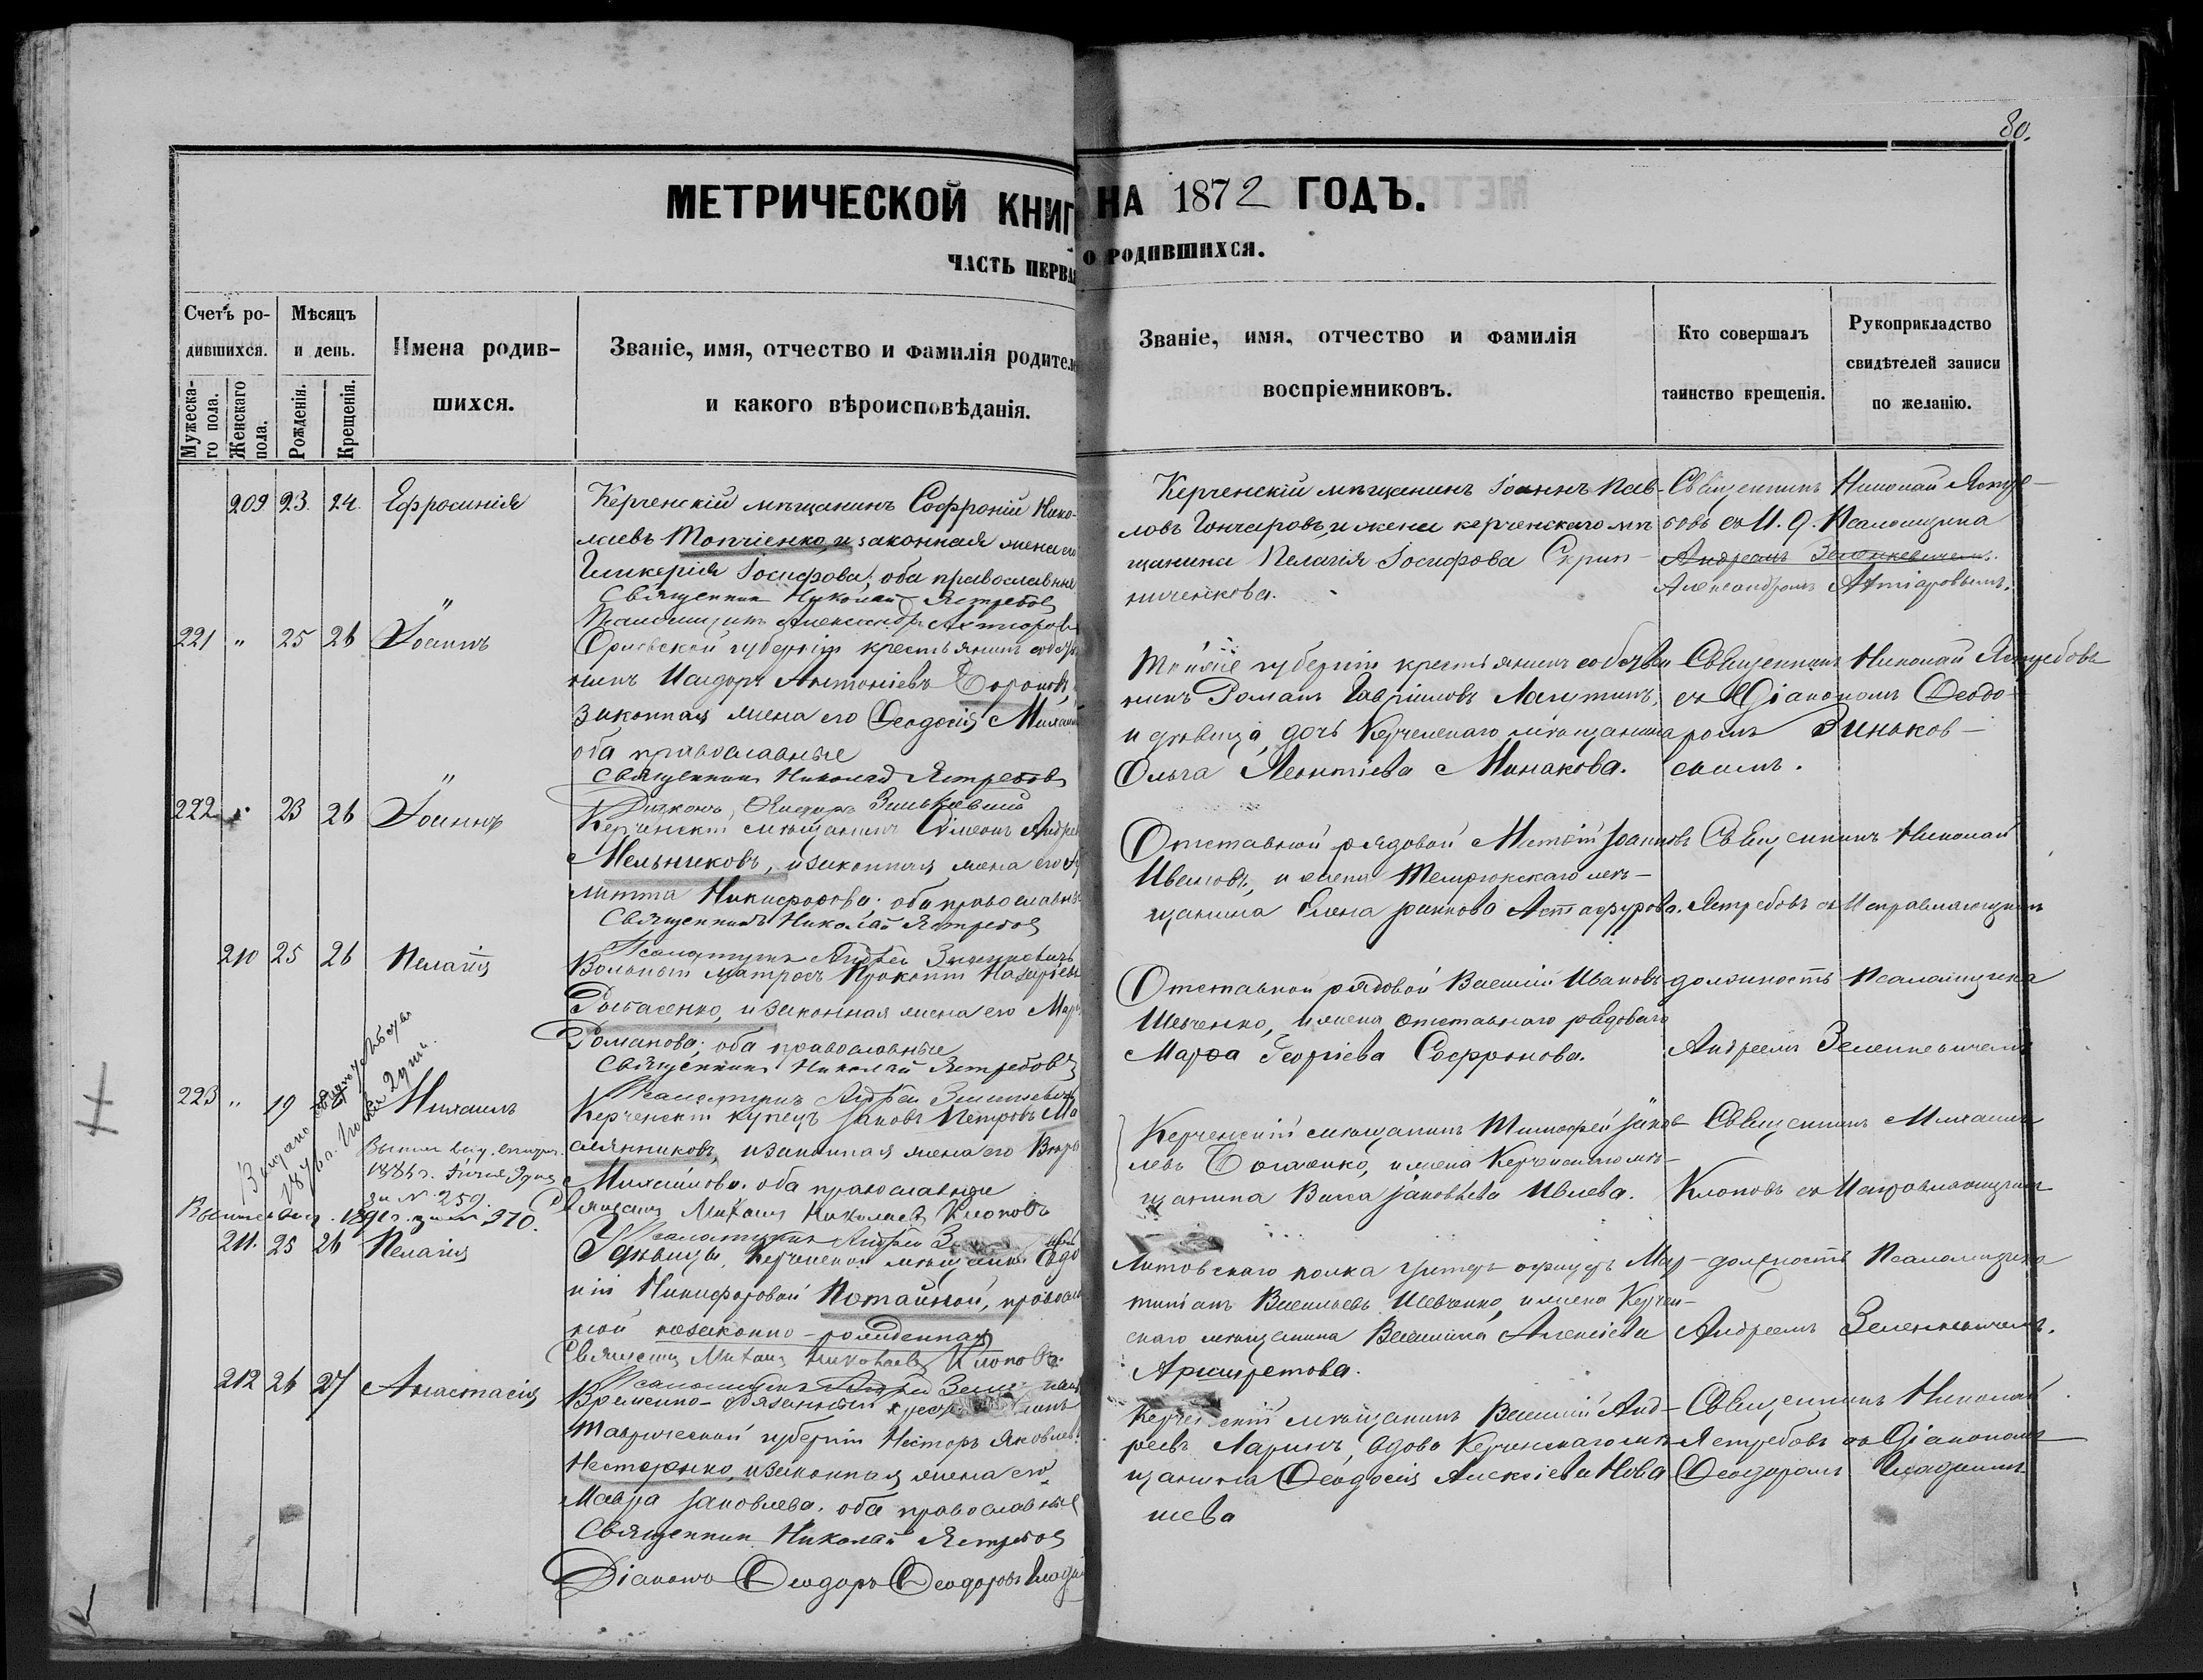 80.
МЕТРИЧЕСКОЙ КНИГ НА 1872 ГОДЪ.
ЧАСТЬ ПЕРВАЯ О РОДИВШИХСЯ.
Счетъ ро-
дившихся.
Мужеска-
го пола.
Женскаго
пола.
Мѣсяцъ
и день.
Рожденія.
Крещенія.
Имена родив-
шихся.
Званіе, имя, отчество и фамилія родител
и какого вѣроисповѣданія.
Званіе, имя, отчество и фамилія
воспріемниковъ.
Кто совершалъ
таинство крещенія.
Рукоприкладство
свидѣтелей записи
по желанію.
209 23. 24. Ефросинія
Керченскій мѣщанинъ Софроній Нико-
лаевъ Топчіенко, и законная жена его
Гликерія Іосифова; оба православные
Священникъ Николай Ястребовъ
Псаломщикъ Александръ Ахтіаров
Керченскій мѣщанинъ Іоаннъ Пав-
ловъ Гончаровъ, и жена керченскаго мѣ-
щанина Пелагія Іосифова Скрип-
ниченкова.
Священникъ Николай Ястре-
бовъ съ И. д. Псаломщика
Андреемъ Зеленкевичемъ.
Александромъ Ахтіаровымъ.
221 " 25 26 Іоаннъ
Орловской губерніи крестьянинъ собств
никъ Исидоръ Антоніевъ
законная жена его Ѳеодосія Михаил
оба православные
Священникъ Николай Ястребовъ
губерніи крестьянинъ собствен
никъ Романъ Гавріиловъ Лагутинъ,
и дѣвица, дочь Керченскаго мѣщанина
Ольга Леонтіева Минакова.
Священникъ Николай Ястребовъ
съ Діакономъ Ѳеодо-
ромъ Зиньков-
скимъ.
222 " 23 26 Іоаннъ
Керченскій мѣщанинъ Симеонъ Андре
Мельниковъ, и законная жена его
Никифорова. оба православные
Священникъ Николай Ястребовъ
Псаломщикъ Андрей Зеленкевичъ
Отставной рядовой Матѳій Іоанновъ
Ивановъ, и жена Темрюкскаго мѣ-
щанина Елена Астафурова.
Священникъ Николай
Ястребовъ съ Исправляющимъ
210 25 26 Пелагія
Вольный матросъ Прокопій Назаріевъ
и законная жена его Мар
Романова; оба православные
Священникъ Николай Ястребовъ
Псаломщикъ Андрей Зеленкевичъ
Отставной рядовой Василій Ивановъ
Шевченко, и жена отставнаго рядоваго
Марѳа Георгіева Софронова.
должность Псаломщика
Андреемъ Зеленкевичемъ
223 " 19 Михаилъ
259
1891 370.
Керченскій купецъ Іаковъ Петровъ Ма
слянниковъ, и законная жена его
Михайлова. оба православные
Священникъ Михаилъ Николаевъ Клоповъ
Керченскій мѣщанинъ Тимофей Іаков-
левъ и жена Керченскаго мѣ-
щанина Васса Іаковлева Ивлева.
Священникъ Михаилъ
Клоповъ съ Исправляющимъ
211. 25 26 Пелагія
дѣвицы, Керченской мѣщанки Евдо
кіи Никифоровой Потайной, православ
ной незаконно-рожденная
Священникъ Михаилъ Николаевъ Клоповъ.
Литовскаго полка унтеръ-офицеръ Мар-
тиніанъ Васильевъ Шевченко, и жена Керчен-
скаго мѣщанина Василиса Алексіева
должность Псаломщика
Андреемъ Зеленкевичемъ.
212 26 27 Анастасія
Временно-обязанный
Таврической губерніи Несторъ Яковлев
Нестеренко, и законная жена его
Мавра Іаковлева. оба православные
Священникъ Николай Ястребовъ
Діаконъ Ѳеодоръ Ѳеодоровъ
Керченскій мѣщанинъ Василій Анд-
реевъ Ларинъ, вдова Керченскаго мѣ-
щанина Ѳеодосія Алексіева Нова
шева
Священникъ Николай
Ястребовъ съ Діакономъ
Ѳеодоромъ